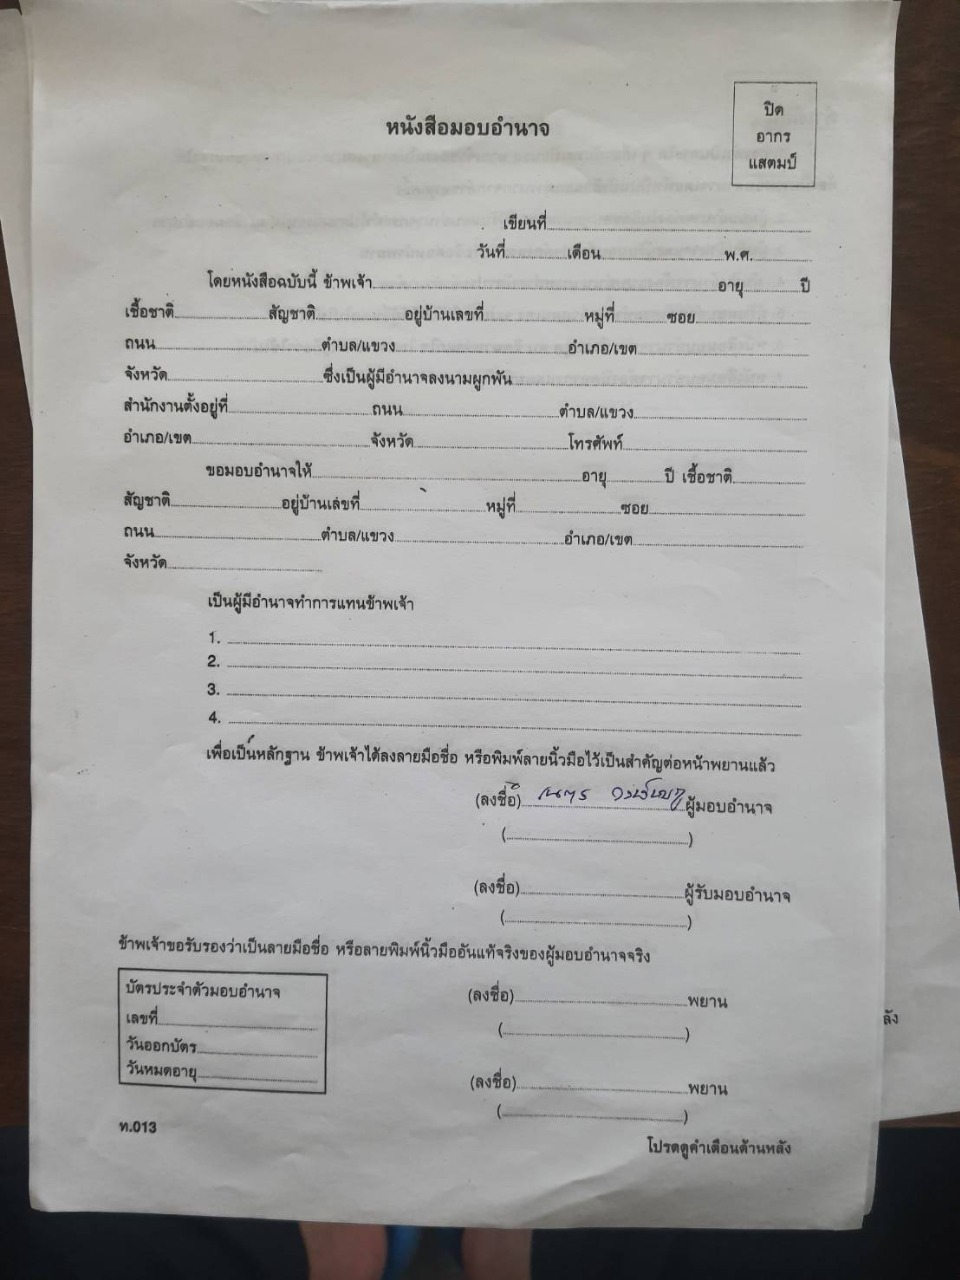 หนังสือมอบอำนาจ
ปิด
อากร
แสตมป์
เขียนที่
วันที่ เดือน พ.ศ.
โดยหนังสือฉบับนี้ ข้าพเจ้า อายุ ปี
เชื้อชาติ สัญชาติ อยู่บ้านเลขที่ หมู่ที่ ซอย
ถนน ตำบล/แขวง อำเภอ/เขต
จังหวัด ซึ่งเป็นผู้มีอำนาจลงนามผูกพัน
สำนักงานตั้งอยู่ที่ ถนน ตำบล/แขวง
อำเภอ/เขต จังหวัด โทรศัพท์
ขอมอบอำนาจให้ อายุ ปี เชื้อชาติ
สัญชาติ อยู่บ้านเลขที่ หมู่ที่ ซอย
ถนน ตำบล/แขวง อำเภอ/เขต
จังหวัด
เป็นผู้มีอำนาจทำการแทนข้าพเจ้า
1.
2.
3.
4.
เพื่อเป็นหลักฐาน ข้าพเจ้าได้ลงลายมือชื่อ หรือพิมพ์ลายนิ้วมือไว้เป็นสำคัญต่อหน้าพยานแล้ว
(ลงชื่อ) ผู้มอบอำนาจ
( )
(ลงชื่อ) ผู้รับมอบอำนาจ
( )
ข้าพเจ้าขอรับรองว่าเป็นลายมือชื่อ หรือลายพิมพ์นิ้วมืออันแท้จริงของผู้มอบอำนาจจริง
บัตรประจำตัวมอบอำนาจ
เลขที่
วันออกบัตร
วันหมดอายุ
(ลงชื่อ) พยาน
( )
(ลงชื่อ) พยาน
( )
ท.013
โปรดดูคำเตือนด้านหลัง
ลัง